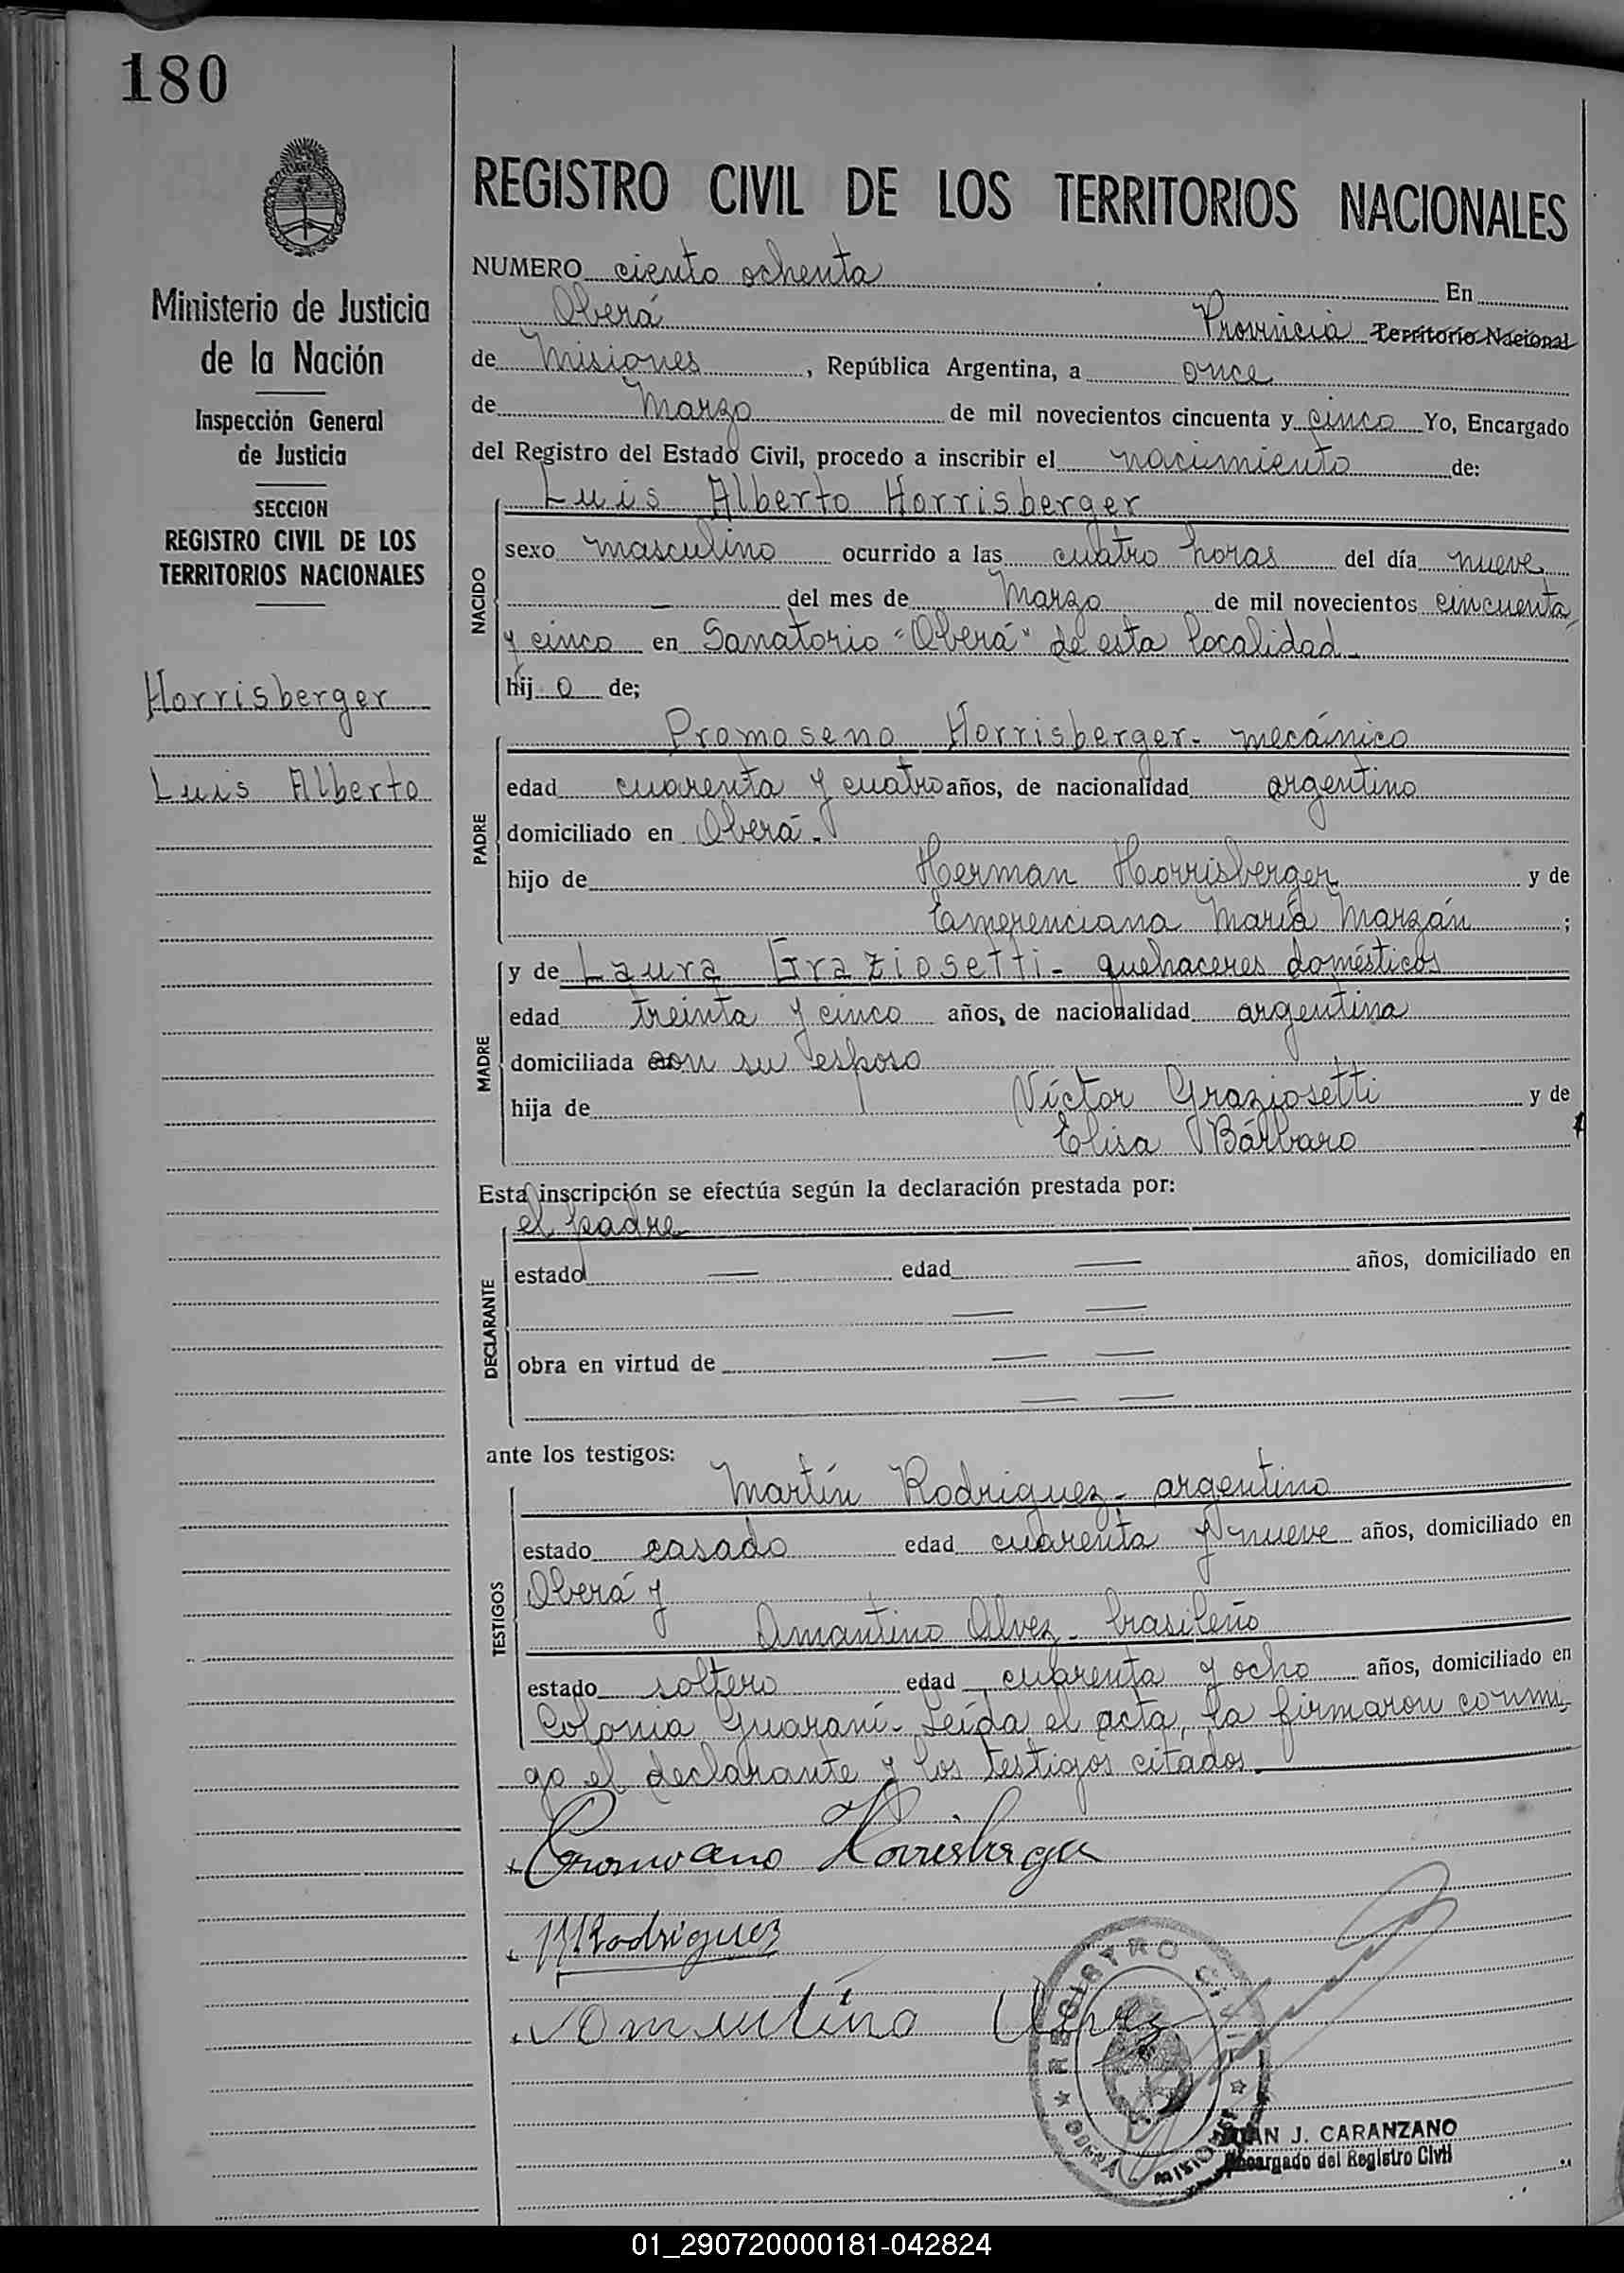 180
Ministerio de Justicia
de la Nación
Inspección General
de Justicia
SECCION
REGISTRO CIVIL DE LOS
TERRITORIOS NACIONALES
Horrisberger
Luis Alberto
REGISTRO CIVIL DE LOS TERRITORIOS NACIONALES
NUMERO ciento ochenta En
Oberá Provincia Territorio Nacional
de Misiones, República Argentina, a once
de Marzo de mil novecientos cincuenta y cinco Yo, Encargado
del Registro del Estado Civil, procedo a inscribir el nacimiento de:
NACIDO
Luis Alberto Horrisberger
sexo masculino ocurrido a las cuatro horas del día nueve
del mes de Marzo de mil novecientos cincuenta
y cinco en Sanatorio "Oberá" de esta localidad
hijo de;
PADRE
Promoseno Horrisberger - mecánico
edad cuarenta y cuatro años, de nacionalidad argentino
domiciliado en Oberá -
hijo de Herman Horrisberger y de
Emerenciana María Marzán ;
MADRE
y de Laura Graziosetti - quehaceres domésticos
edad treinta y cinco años, de nacionalidad argentina
domiciliada con su esposo
hija de Víctor Graziosetti y de
Elisa Bárbaro
Esta inscripción se efectúa según la declaración prestada por:
DECLARANTE
el padre
estado — edad — años, domiciliado en
— —
obra en virtud de — —
— —
ante los testigos:
TESTIGOS
Martín Rodriguez - argentino
estado casado edad cuarenta y nueve años, domiciliado en
Oberá y
Amantino Alvez - brasileño
estado soltero edad cuarenta y ocho años, domiciliado en
Colonia Guaraní - Leída el acta, la firmaron conmi-
go el declarante y los testigos citados.
Horrisberger
M Rodriguez
Alvez
REGISTRO CIVIL
OBERA MISIONES
JUAN J. CARANZANO
Encargado del Registro Civil
01_290720000181-042824